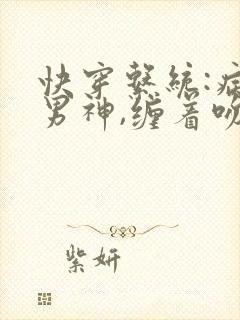 快穿系统:病
男神,缠着吻
紫妍